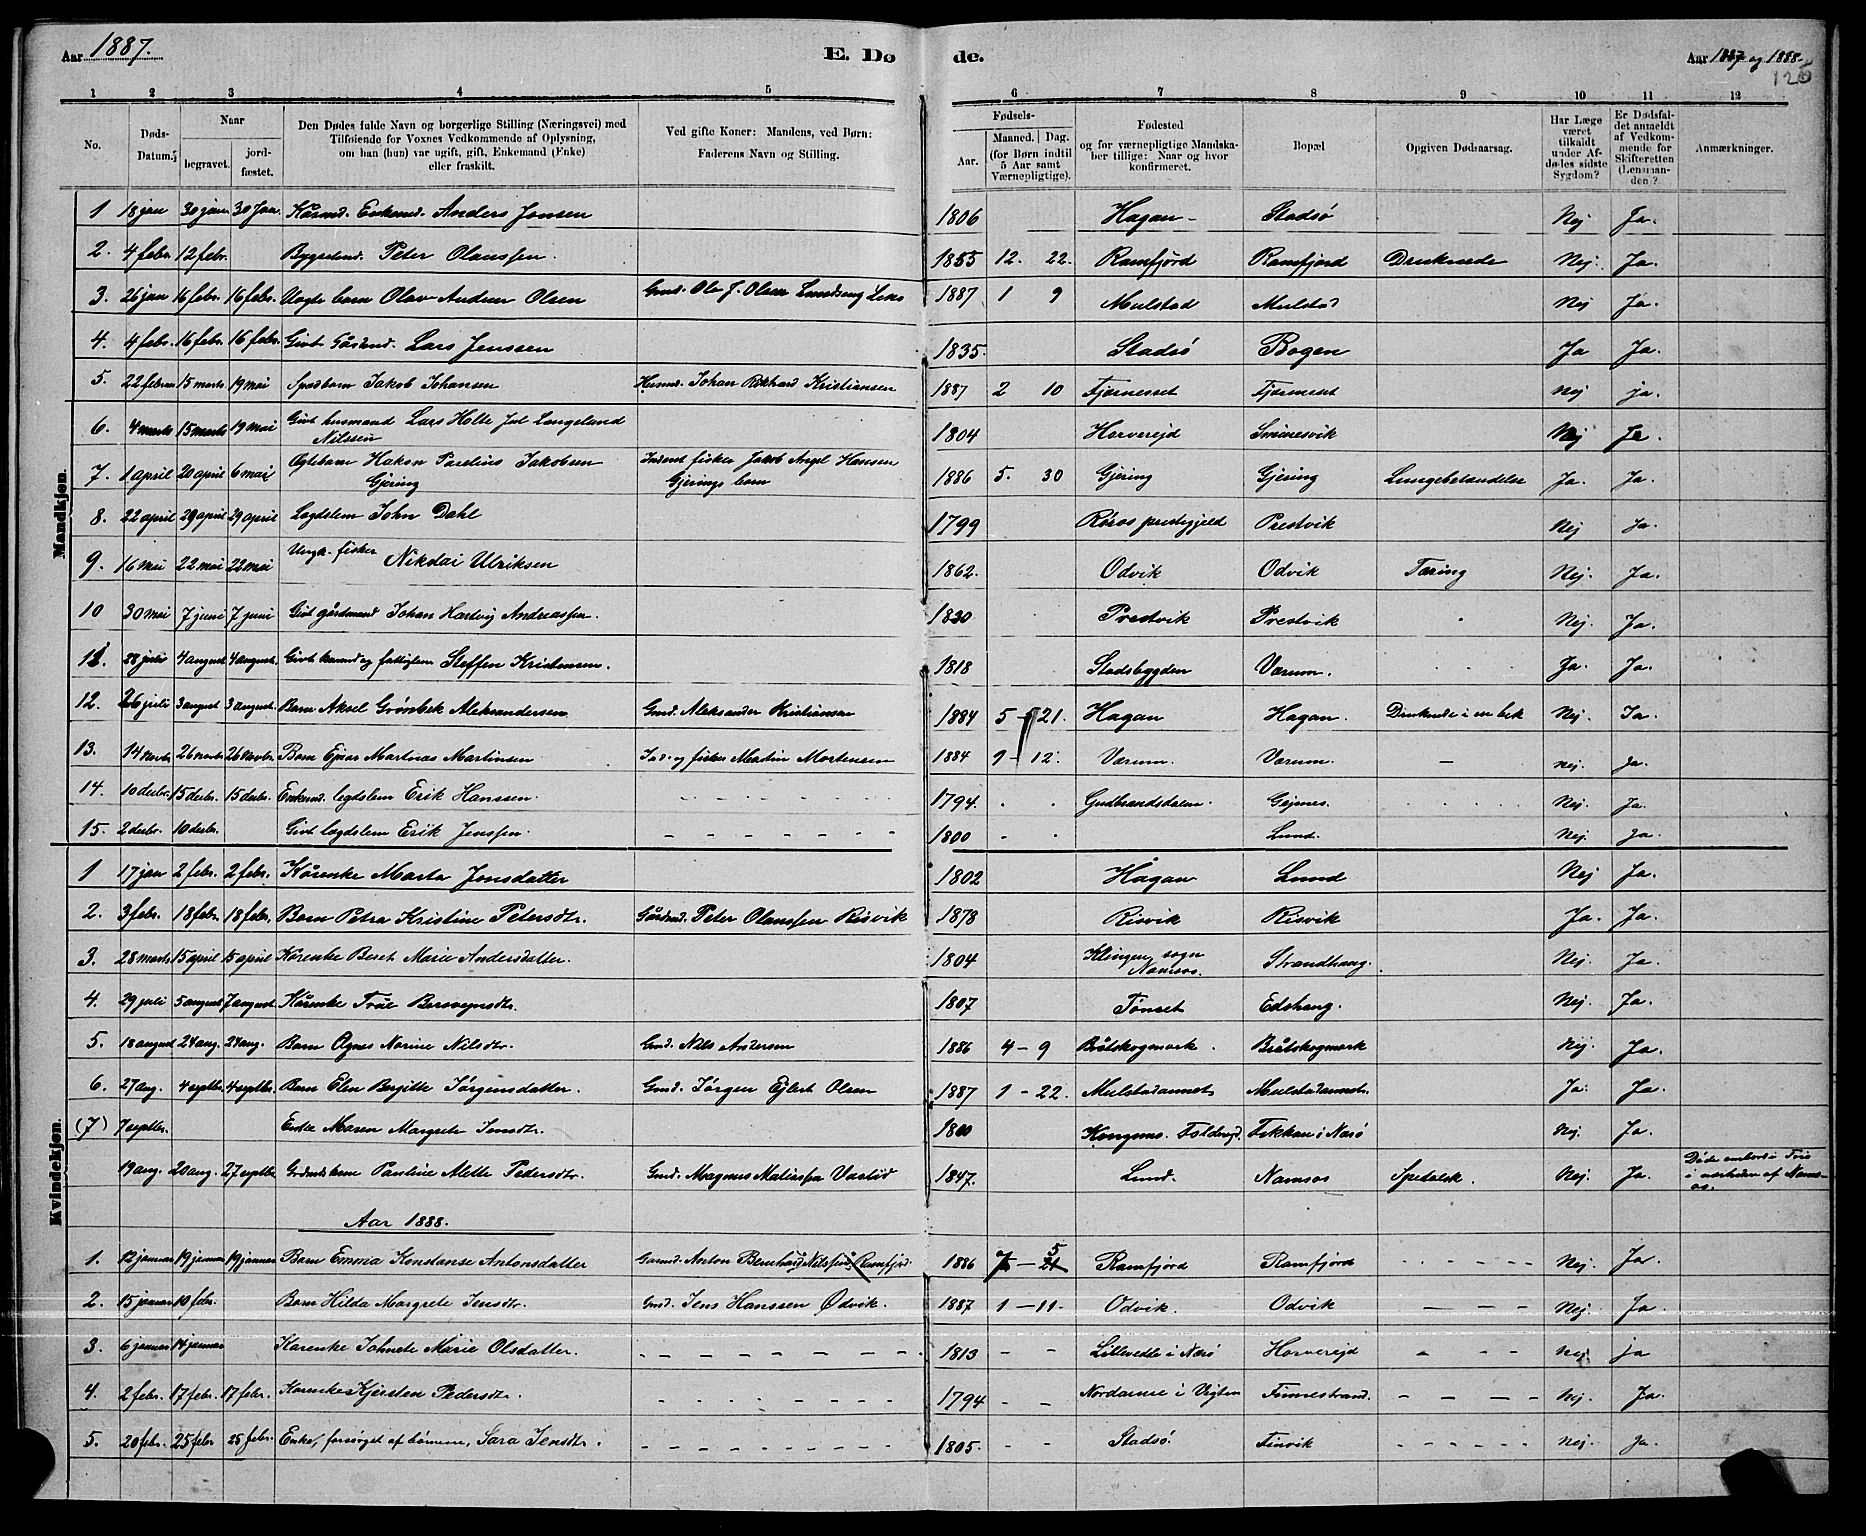 Aar 1887. E. Dø de. Aar 1887 og 1888.
125
1 2 3 4 5 6 7 8 9 10 11 12
No. Døds-Datum. Naar begravet. jordfæstet. Den Dødes fulde Navn og borgerlige Stilling (Næringsvei) med Tilføiende for Voxnes Vedkommende af Oplysning, om han (hun) var ugift, gift, Enkemand (Enke) eller fraskilt. Ved gifte Koner: Mandens, ved Børn: Faderens Navn og Stilling. Fødsels- Aar. Maaned. Dag. (for Børn indtil 5 Aar samt Værnepligtige). Fødested og for værnepligtige Mandskaber tillige: Naar og hvor konfirmeret. Bopæl Opgiven Dødsaarsag. Har Læge været tilkaldt under Afdødes sidste Sygdom? Er Dødsfaldet anmeldt af Vedkommende for Skifteretten (Lensmanden)? Anmærkninger.
Mandkjøn.
1 18 jan 30 jan 30 Jan. Kårmd. Enkemd. Anders Jonsen 1806 Hagan Stadsø Nej Ja.
2. 4 febr. 12 febr. Bygselmd. Peter Olanssen. 1855 12. 22. Ramfjord Ramfjord Druknede Nej. Ja.
3. 26 jan 16 febr. 16 febr. Ægte barn Olav Andreas Olsen Gmd. Ole J. Olsen 1887 1 9 Mulstad Mulstad Nej Ja.
4. 4 febr. 16 febr. 16 febr. Givt Gårdmd. Lars Jenssen 1835. Stadsø Bogen Ja Ja.
5. 22 febr 15 marts 19 mai Spædbarn Jakob Johansen Husmd. Johan Rikhard Kristiansen 1887 2 10 Fjærnesset Fjærnesset Nej ja.
6. 4 marts 15 marts 19 mai Givt husmand Lars Holte Jul Langeland Nilssen 1804 Horverejd Sminesvik Nej Ja.
7. 1 april 20 april 6 mai Ægtebarn Hakon Parelius Jakobsen Gjæring Inderst fisker Jakob Angel Hansen Gjærings barn 1886 5. 30 Gjæring Gjæring Lungebetændelse Ja. Ja.
8. 22 april 29 april 29 april Lægdslem John Dahl 1799 Røros prestegjeld Prestvik Nej Ja
9. 16 mai 22 mai 22 mai Ungk. fisker Nikolai Ulriksen 1862. Odvik Odvik Tæring Nej. Ja.
10 30 mai 7 juni 7 juni Givt gårdmand Johan Hartvig Andreassen. 1830 Prestvik Prestvik Nej. Ja.
11. 28 juli 4 august 4 august. Givt og fattiglem Steffen Kristensen. 1818 Stadsbygden Værum. Ja. Ja.
12. 26 juli 3 august 3 august. Barn Aksel Grønbek Aleksandersen Gmd. Aleksander Kristiansen 1884 5 - 21. Hagan Hagan. Druknede i en bek Nej. Ja.
13. 14 novbr 26 novbr 26 novbr. Barn Ejnar Martinus Martinsen Ind. og fisker Martin Mortensen 1884 9 - 12. Værum. Værum. - nej. ja.
14. 10 decbr. 15 decbr. 15 decbr. Enkemd. legdslem Erik Hanssen. 1794. Gudbrandsdalen. Gejsnes. Nej. Ja.
15. 2 decbr. 10 decbr. Givt lægdslem Erik Jenssen. 1800 Lund. Nej. Ja.
Kvindekjøn.
1 17 jan 2 febr. 2 febr. Kårenke Marta Jonsdatter 1802 Hagan Lund Nej Ja.
2. 3 febr. 18 febr. 18 febr. Barn Petra Kristine Petersdtr. Gårdmd. Peter Olanssen Risvik 1878 Risvik Risvik Ja. Ja.
3. 28 marts 15 april 15 april Kårenke Beret Marie Andersdatter. 1804 Klingen sogn Namsos. Strandhang. Nej. Ja.
4. 29 juli 5 august 7 august. Kårenke True Bersvejnsdtr. 1807 Tønset Edshaug. Nej. Ja.
5. 18 august 24 aug. 24 aug. Barn Agnes Norine Nilsdtr. Gmd. Nils Andersen 1886 4 - 9 Bråtskogmark. Bråtskogmark Nej. Ja.
6. 27 aug. 4 septbr. 4 septbr. Barn Elen Bergitte Jørgensdatter. Gmd. Jørgen Ejlert Olsen 1887 1 - 22. Mulstadannet Mulstadannet. Ja. Ja.
(7) 7 septbr. Enke Maren Margrete Jensdtr. 1800 Kongsmo. Foldereid. Fikkan i Nærø Nej. Ja.
19 aug. 20 aug. 27 septbr. Grdmds kone Pauline Mette Pedersdtr. Gmd. Magnus Matiassen 1847. Lund. Namsos Spedalsk. Nej. Ja. Døde ombord i i nærheden af Namsos.
Aar 1888.
1. 12 januar 19 januar 19 januar Barn Emma Konstanse Antonsdatter Gaardmd. Anton Bernhard Nilssen (Ramfjord 1886 7 - 21 5 Ramfjord Ramfjord Nej. Ja.
2. 15 januar 10 febr. Barn Hilda Margrete Jensdtr. Gmd. Jens Hanssen Ødvik. 1887 1 - 11. Odvik. Odvik Nej. Ja
3. 6 januar 14 januar Kårenke Johnete Marie Olsdatter. 1813 i Nærø Horverejd Nej. ja
4. 2 febr. 17 febr. 17 febr. Kårenke Kjersten Pedersdtr. 1794 i Vigten Finnestrand. Nej. Ja.
5. 20 febr. 25 febr 25 febr. Enke, forsørget af børnene, Sara Jensdtr. 1805. Stadsø. Finvik Nej. Ja.